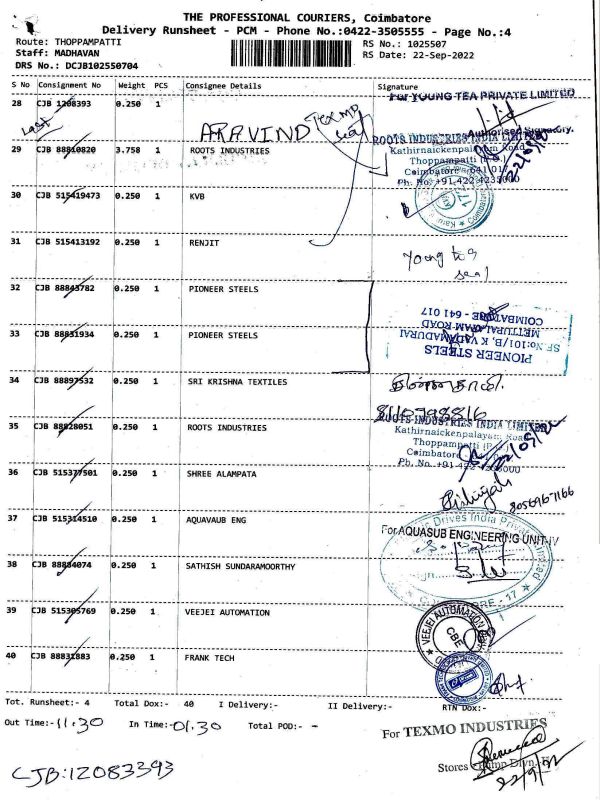 THE PROFESSIONAL COURIERS, Coimbatore
Delivery Runsheet - PCM - Phone No.:0422-3505555 - Page No.:4
Route: THOPPAMPATTI
Staff: MADHAVAN
DRS No.: DCJB102550704
RS No.: 1025507
RS Date: 22-Sep-2022
S No Consignment No Weight PCS Consignee Details Signature
28 CJB 1208393 0.250 1
For YOUNG TEA PRIVATE LIMITED
Authorised Signatory.
Last
ARAVIND TEXMO seal
29 CJB 88810820 3.758 1 ROOTS INDUSTRIES
ROOTS INDUSTRIES INDIA LIMITED
Kathirnaickenpalayam Road
Thoppampatti (P.O.)
Coimbatore - 641 017
Ph. No. +91-422-4235000
30 CJB 515419473 0.250 1 KVB
31 CJB 515413192 0.250 1 RENJIT
Young tea
seal
32 CJB 88843782 0.250 1 PIONEER STEELS
33 CJB 88831934 0.250 1 PIONEER STEELS
PIONEER STEELS
SF No:101/B, K VADAMADURAI
METTUPALAYAM ROAD
COIMBATORE - 641 017
34 CJB 88897532 0.250 1 SRI KRISHNA TEXTILES
8110798816
35 CJB 88828051 0.250 1 ROOTS INDUSTRIES
ROOTS INDUSTRIES INDIA LIMITED
Kathirnaickenpalayam Road
Thoppampatti (P.O.)
Coimbatore
Ph. No. +91-422-4235000
22/09/22
36 CJB 515377501 0.250 1 SHREE ALAMPATA
8056967166
37 CJB 515314510 0.250 1 AQUAVAUB ENG
For AQUASUB ENGINEERING UNIT-IV
38 CJB 88834074 0.250 1 SATHISH SUNDARAMOORTHY
39 CJB 515305769 0.250 1 VEEJEI AUTOMATION
VEEJEI AUTOMATION
CBE
40 CJB 88831883 0.250 1 FRANK TECH
Tot. Runsheet:- 4 Total Dox:- 40 I Delivery:- II Delivery:- RTN Dox:-
Out Time:-11.30 In Time:-01.30 Total POD:- -
For TEXMO INDUSTRIES
Stores
22/9/22
CJB:12083393